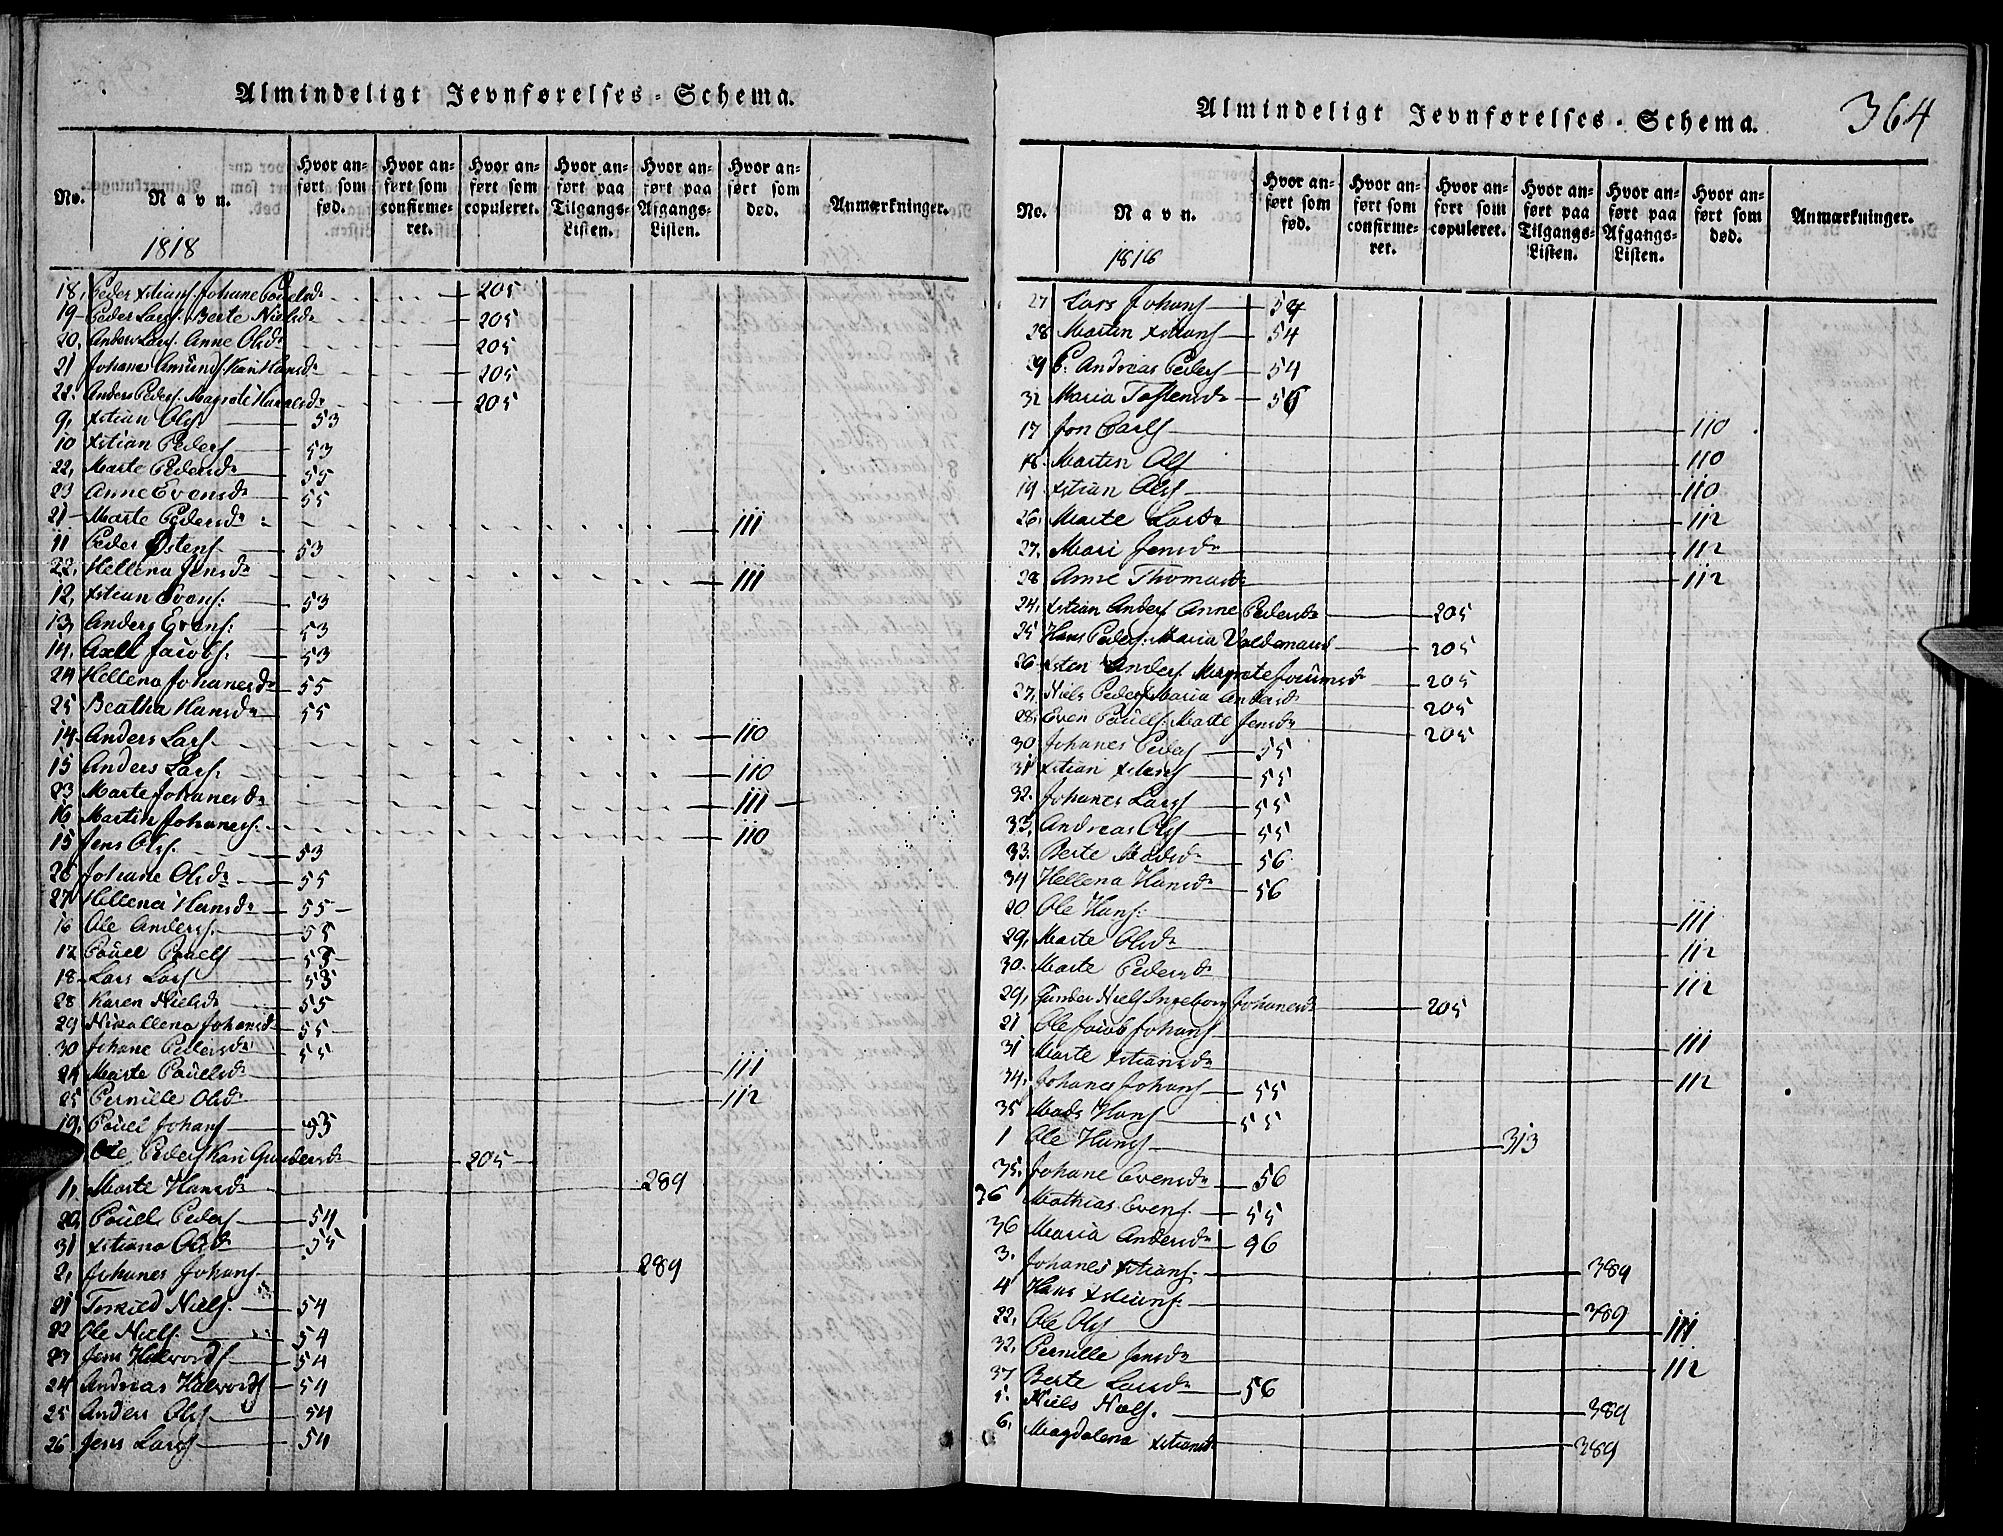 Almindeligt Jevnførelses-Schema.
No. Navn. Hvor anført som fød. Hvor anført som confirmeret. Hvor anført som copuleret. Hvor anført paa Tilgangs-Listen. Hvor anført paa Afgangs-Listen. Hvor anført som død. Anmærkninger.
1818
18, Peder Xstians. Johane Pouelsdr 205
19 Peder Lars. Berte Nielsdr 205
20, Anders Lars. Anne Olsdr 205
21 Johanes Amunds. Kari Hansdr 205
22. Anders Peders. Magrete 205
9, Xstian Ols 53
10 Xstian Peders 53
22, Marte Pedersdr 55
23 Anne Evensdr 55
21 Marte Pedersdr 111
11 Peder Østens 53
22, Hellena Jensdr 111
12, Xstian Evens: 53
13, Anders Evens: 53
14, Axell Jacobs. 53
24 Hellena Johanesdr 55
25 Beatha Hansdr 55
14 Anders Lars. 110
15 Anders Lars. 110
23 Marte Johanesdr 111
16 Martin Johanes. 110
15 Jens Ols. 53
26 Johane Olsdr 55
27 Hellena Hansdr 55
16 Ole Anders. 53
17 Pouel Pouels 53
18 Lars Lars 53
28 Karen Nielsdr 55
29 Nicollena Johansdr 55
30 Johane Pedersdr 55
24 Marte Pouelsdr 111
25 Pernille Olsdr 112
19, Pouel Johans 53
Ole Peders Kari Gundersdr 205
1, Marte Hansdr 289
20, Pouels Peders 54
31 Xstiana Olsdr 55
2, Johanes Johans 289
21 Torkild Niels. 54
22 Ole Niels. 54
23 Jens Halvords 54
24 Andreas Halvords 54
25 Anders Ols 54
26 Jens Lars 54
Almindeligt Jevnførelses-Schema. 364
No. Navn. Hvor anført som fød. Hvor anført som confirmeret. Hvor anført som copuleret. Hvor anført paa Tilgangs-Listen. Hvor anført paa Afgangs-Listen. Hvor anført som død. Anmærkninger.
1818
27 Lars Johans 54
28 Martin Xstians 54
29 P. Andreas Peders 54
32 Maria Tostensdr 56
17 Jon Carls 110
18. Martin Ols 110
19 Xstian Ols 110
26, Marte Larsdr 112
27. Mari Jensdr 112
28 Anne Thomasdr 112
24, Xstian Anders Anne Pedersdr 205
25 Hans Peders. Maria Valdemarsd 205
26 Anders. Magrete 205
27, Niels Peders Maria Andersdr 205
28, Even Pouels. Marte Jensdr 205
30 Johanes Peders 55
31 Xstian Xstians 55
32. Johanes Lars 55
33, Andreas Ols 55
33. Berte Madsdr 56
34 Hellena Hansdr 56
20 Ole Hans: 111
29, Marte Olsdr 112
30. Marte Pedersdr 112
29, Gunder Niels Ingeborg Johanesdr 205
21 Ole Jacob Johans 111
31 Marte Xstiansdr 112
34, Johanes Johans 55
35 Mads Hans 55
1 Ole Hans 313
35. Johane Evensdr 56
36 Mathias Evens. 55
36 Maria Andersdr 96
3. Johanes Xstians. 389
4 Hans Xstians. 389
22, Ole Ols 111
32, Pernille Jensdr 112
37 Berte Larsdr 56
5. Niels Niels. 389
6, Magdalena Xstiansdr 389